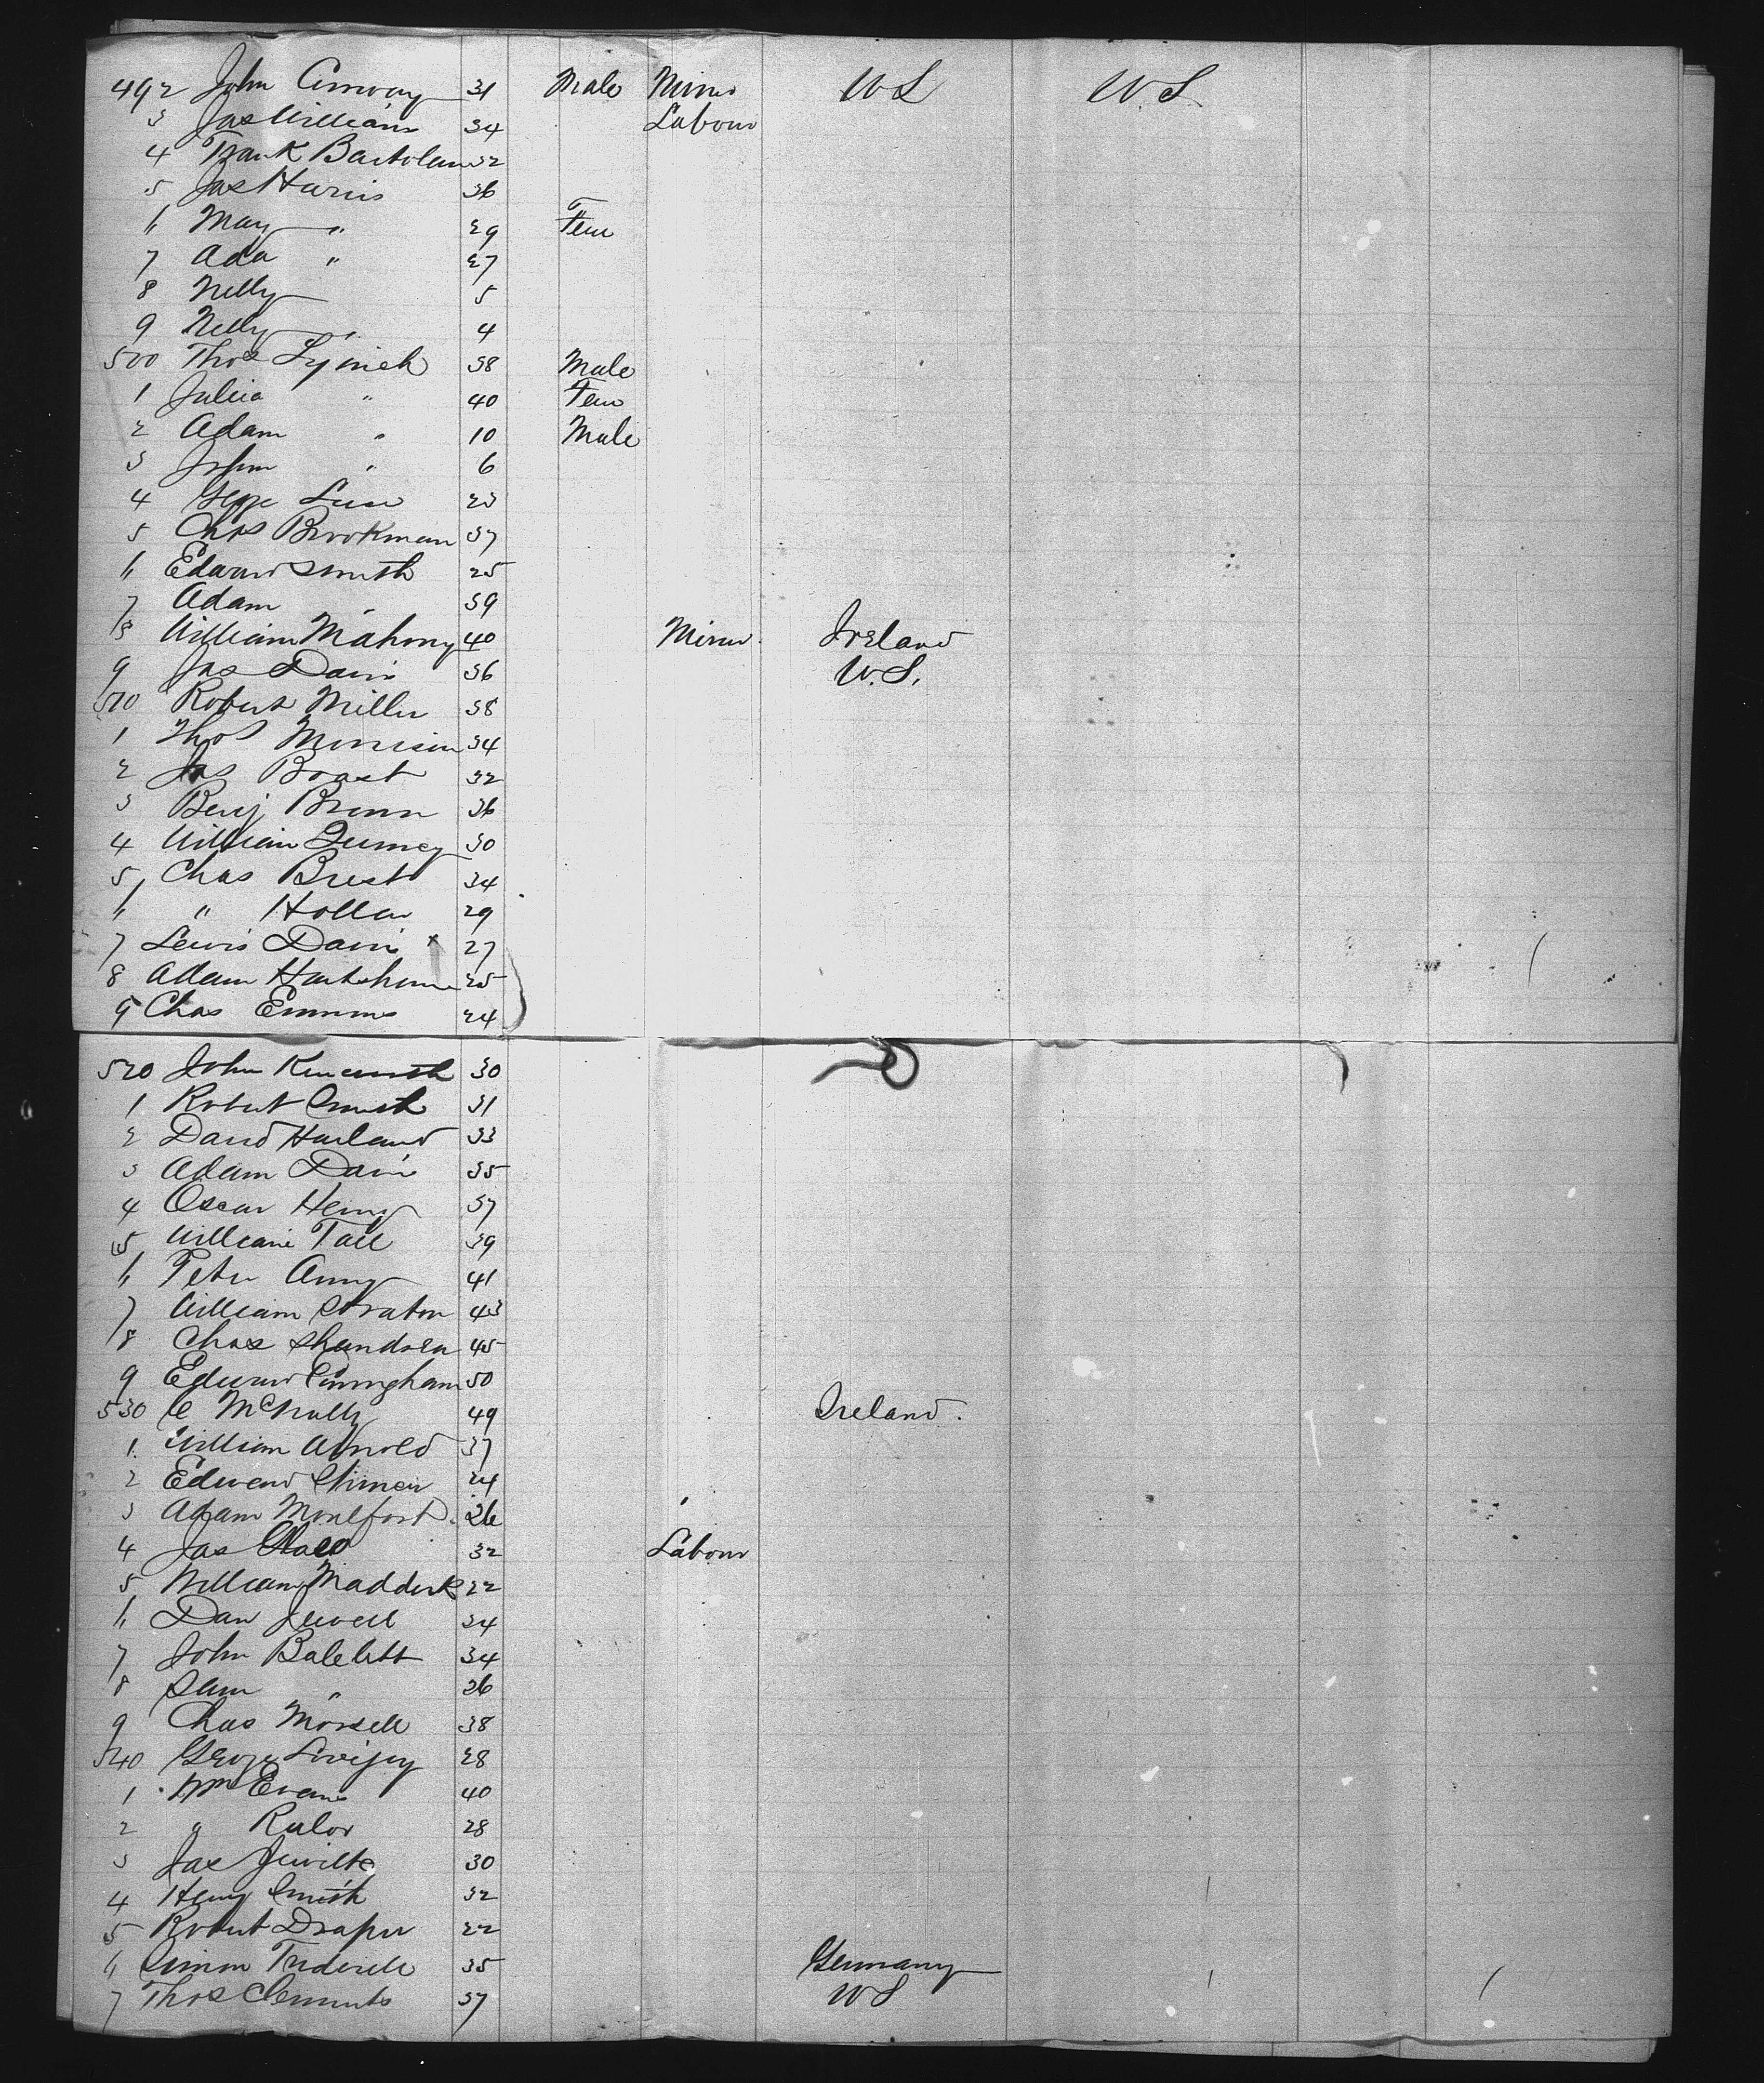 492 John Conway 31 Male Miner U S U. S.
3 Jas Williams 34 Labour
4 Frank Bartolam 32
5 Jas Harris 36
6 May " 29 Fem
7 Ada " 27
8 Nelly 5
9 Nelly " 4
500 Thos Lynich 38 Male
1 Julia " 40 Fem
2 Adam " 10 Male
3 John " 6
4 Geoge 23
5 Chas Brookman 37
6 Edward Smith 25
7 Adam " 39
8 William Mahony 40 Miner Ireland
9 Jas Davis 36 U. S.
510 Robert Miller 38
1 Thos Morrison 34
2 Jas Boast 32
3 Benj Brown 36
4 William 30
5 Chas Brest 34
6 " 29
7 Lewis Davis 27
8 Adam Hartshorn 25
9 Chas Emmons 24
520 John 30
1 Robert Smith 31
2 David Harland 33
3 Adam Davis 35
4 Oscar Henry 37
5 William Tall 39
6 Peter 41
7 William Straton 43
8 Chas 45
9 Edward Cuningham 50
530 C McNully 49 Ireland.
1 William Arnold 37
2 Edward 24
3 Adam Monlfort 26
4 Jas 32 Labour
5 William Maddick 22
6 Dan Jewell 34
7 John 34
8 Sam " 36
9 Chas Morsell 38
540 George 28
1 Wm Evans 40
2 " Rulor 28
3 Jas 30
4 Henry Smith 32
5 Robert Draper 22
6 Simon 35 Germany
7 Thos Clements 37 U S